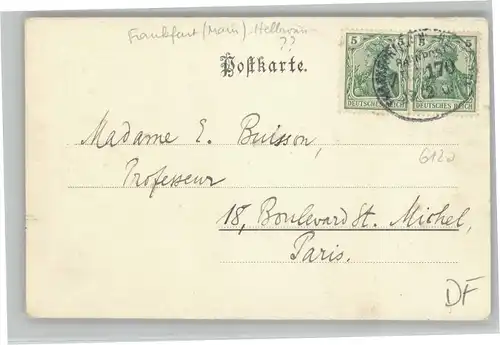 Frankfurt (Main) Heilbronn
??
Postkarte.
5 5
DEUTSCHES REICH DEUTSCHES REICH
BAHNPOST
170
Madame E. Buisson,
Professeur
6120
18, Boulevard St. Michel,
Paris.
DF